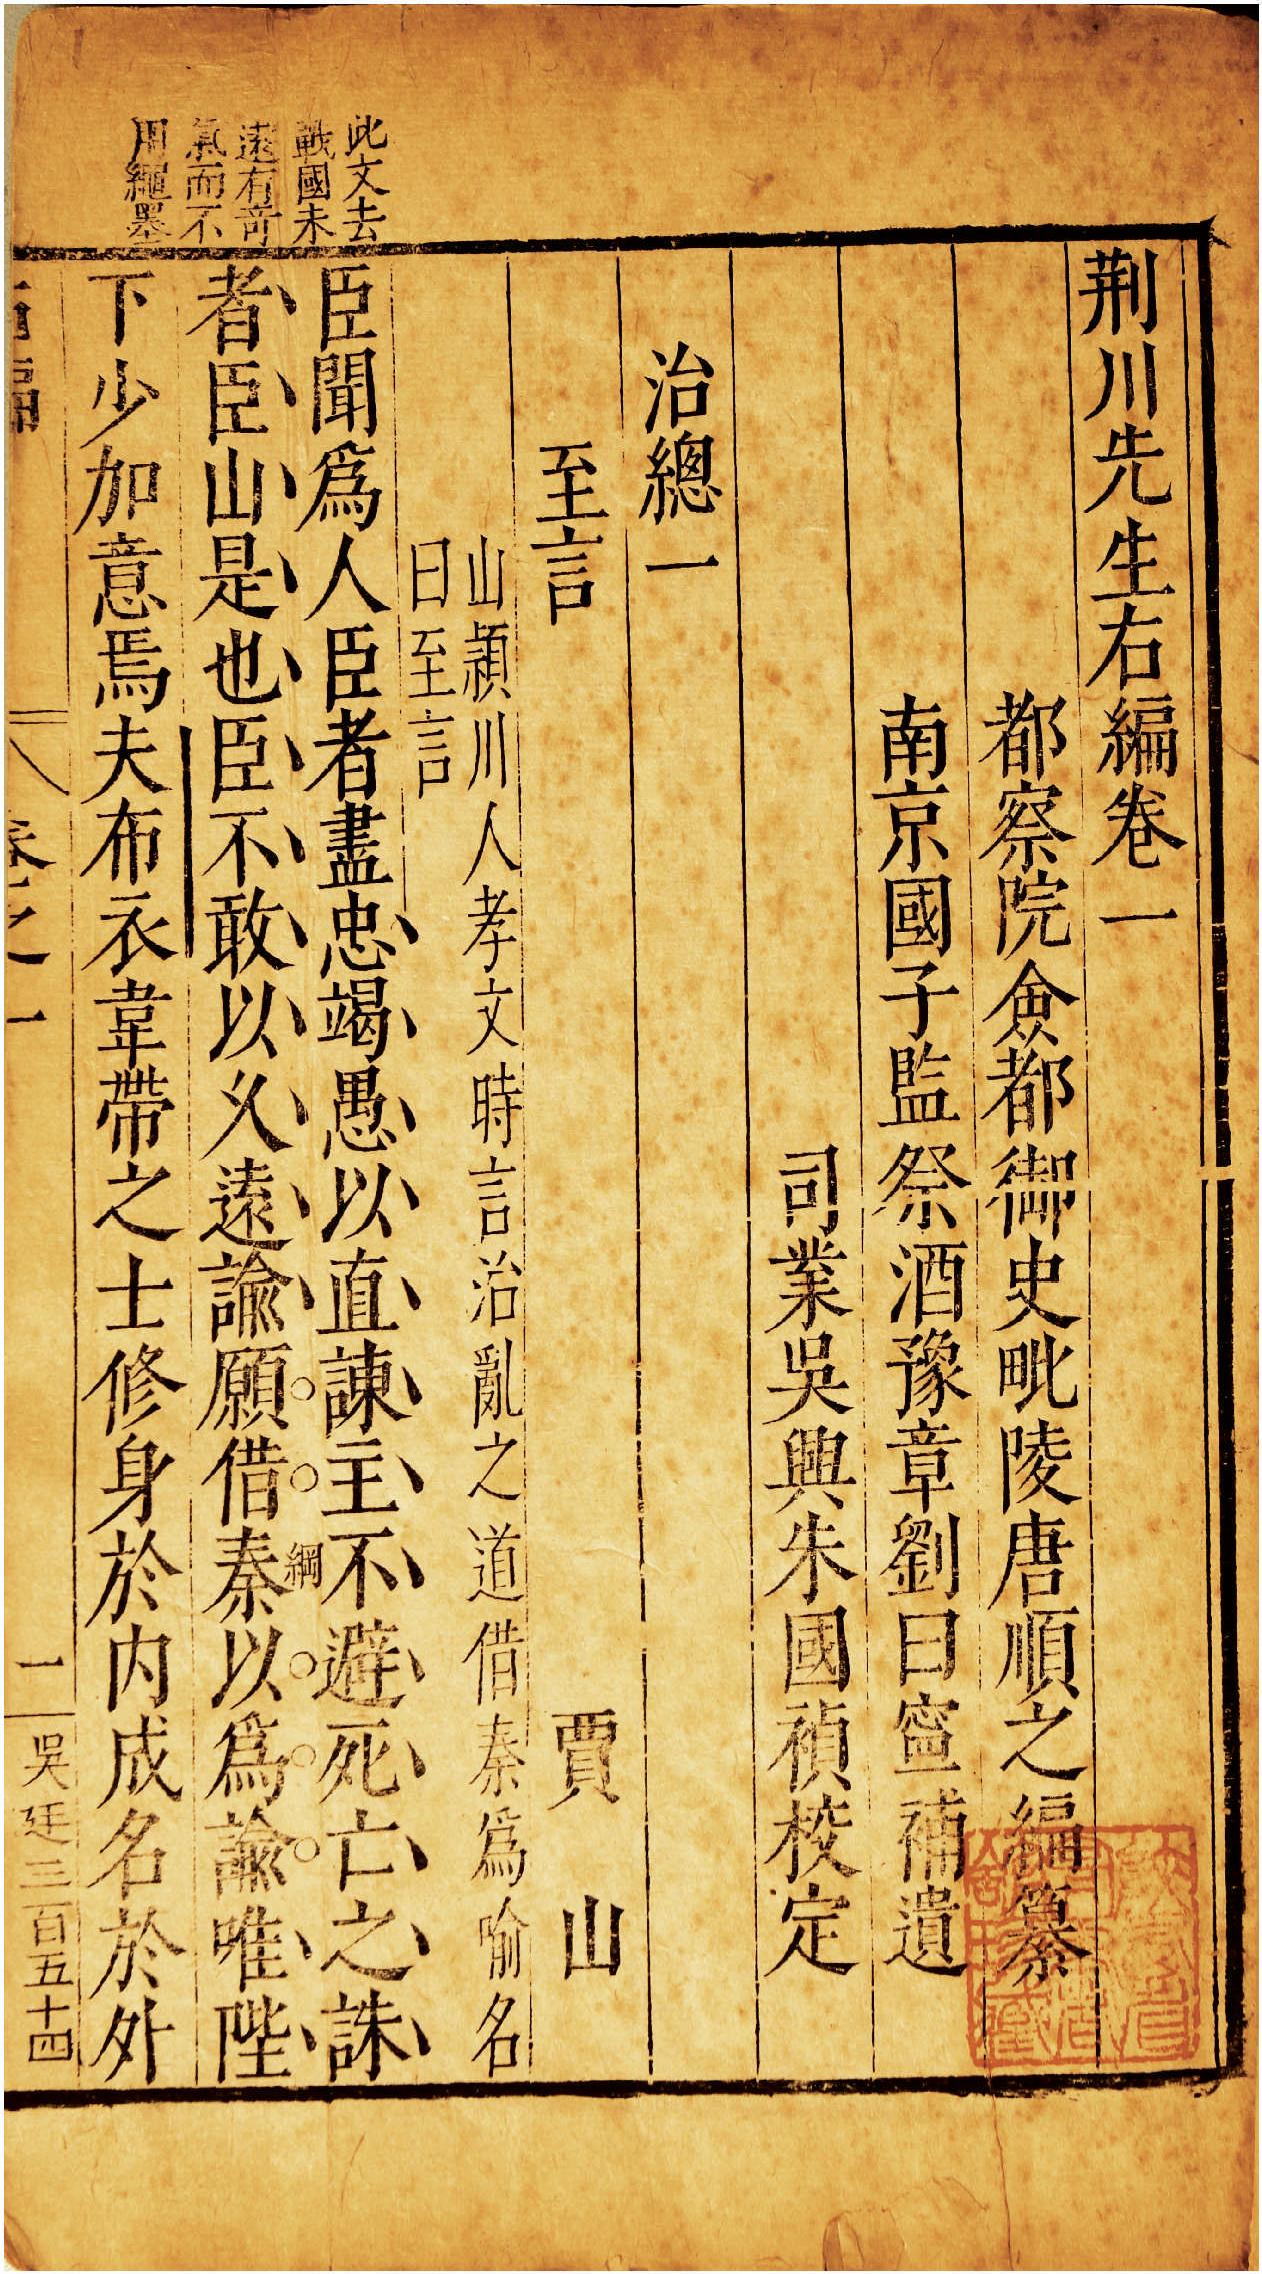 荆川先生右編卷一
都察院僉都御史毗陵唐順之編纂
南京國子監祭酒豫章劉曰寧補遺
司業吳興朱國禎校定
治總一
至言 賈山
山潁川人孝文時言治亂之道借秦爲喻名
曰至言
此文去
戰國未
遠有奇
氣而不
用繩墨
臣聞爲人臣者盡忠竭愚以直諫主不避死亡之誅
者臣山是也臣不敢以乆遠諭願借秦以爲諭唯陛
綱
下少加意焉夫布衣韋帶之士修身於内成名於外
卷之一
一
吳廷三百五十四